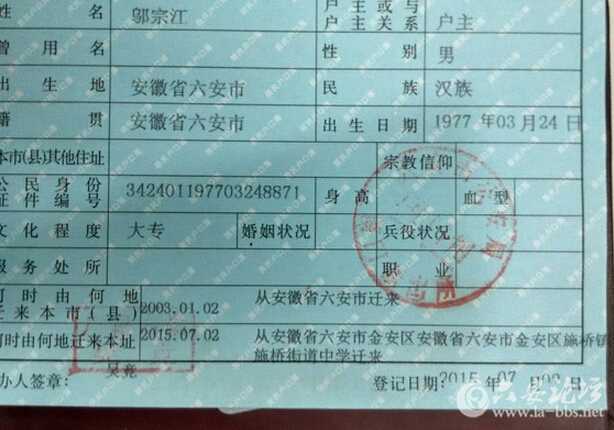 姓 名 邬宗江 户主或与户主关系 户主
曾 用 名 性 别 男
出 生 地 安徽省六安市 民 族 汉族
籍 贯 安徽省六安市 出 生 日 期 1977 年03 月24 日
本市(县)其他住址 宗教信仰
公民身份证件编号 342401197703248871 身 高 血 型
文 化 程 度 大专 婚姻状况 兵役状况
服 务 处 所 职 业
何时由何地迁来本市(县) 2003.01.02 从安徽省六安市迁来
何时由何地迁来本址 2015.07.02 从安徽省六安市金安区安徽省六安市金安区施桥镇
施桥街道中学迁来
办人签章: 吴竟 登记日期:2015 年 07 月02 日
六安论坛
www.la-bbs.net